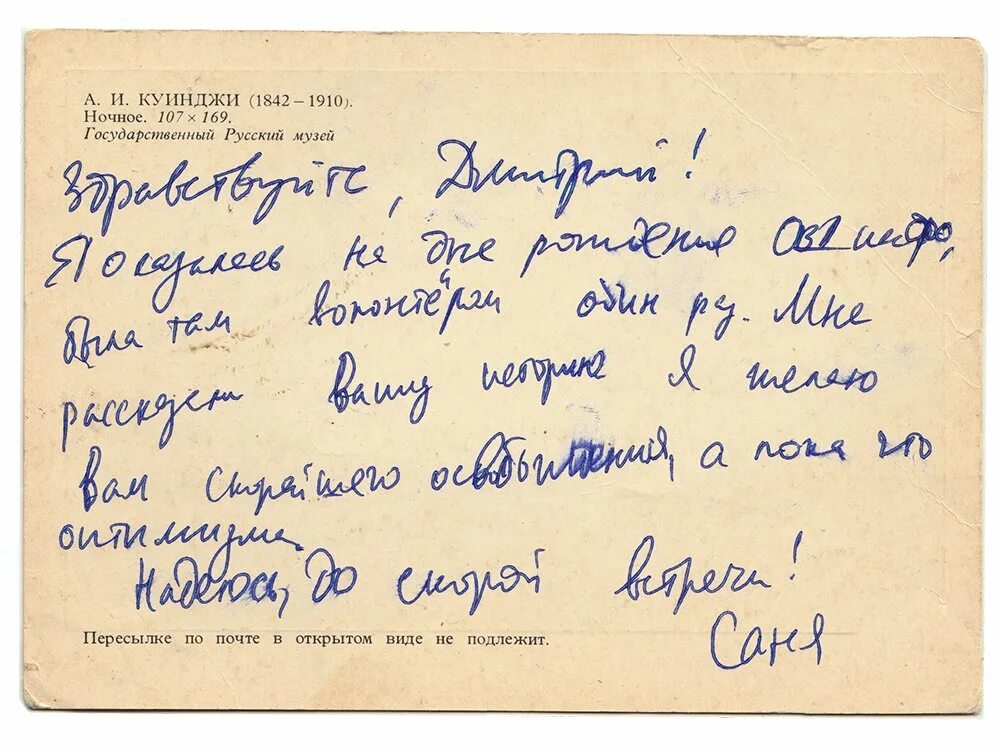 А. И. КУИНДЖИ (1842 – 1910).
Ночное. 107 × 169.
Государственный Русский музей
Здравствуйте, Дмитрий!
Я оказалась на дне рождения ОВД инфо,
была там волонтёром один раз. Мне
рассказали Вашу историю Я желаю
Вам скорейшего освобождения, а пока что
оптимизма.
Надеюсь, до скорой встречи!
Пересылке по почте в открытом виде не подлежит.
Саня